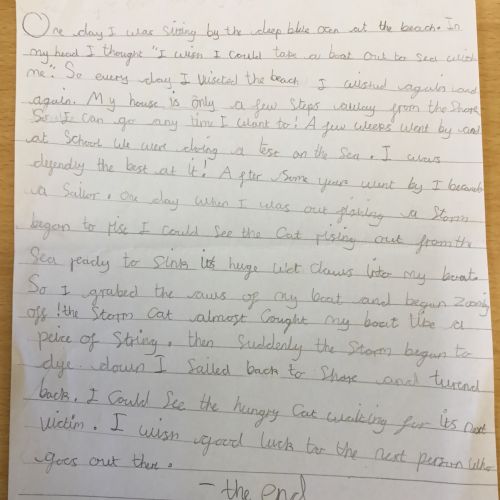 One day I was sitting by the deep blue ocen at the beach. In
my head I thought "I wish I could take a boat out to sea with
me". So every day I visited the beach I wished again and
again. My house is only a few steps away from the Shore
So I can go any time I want to! A few weeks went by and
at School we were doing a test on the Sea. I was
defendly the best at it! After Some years went by I became
a Sailor. One day when I was out fishing a Storm
began to rise I could See the Cat rising out from the
Sea ready to sink its huge wet claws into my boat.
So I grabed the oars of my boat and began zooming
off! the Storm Cat almost cought my boat like a
peice of String. then Suddenly the Storm began to
dye down I Sailed back to Shore and turend
back. I Could See the hungry Cat waiting for its next
victim. I wish good luck to the next person who
goes out there.
- the end